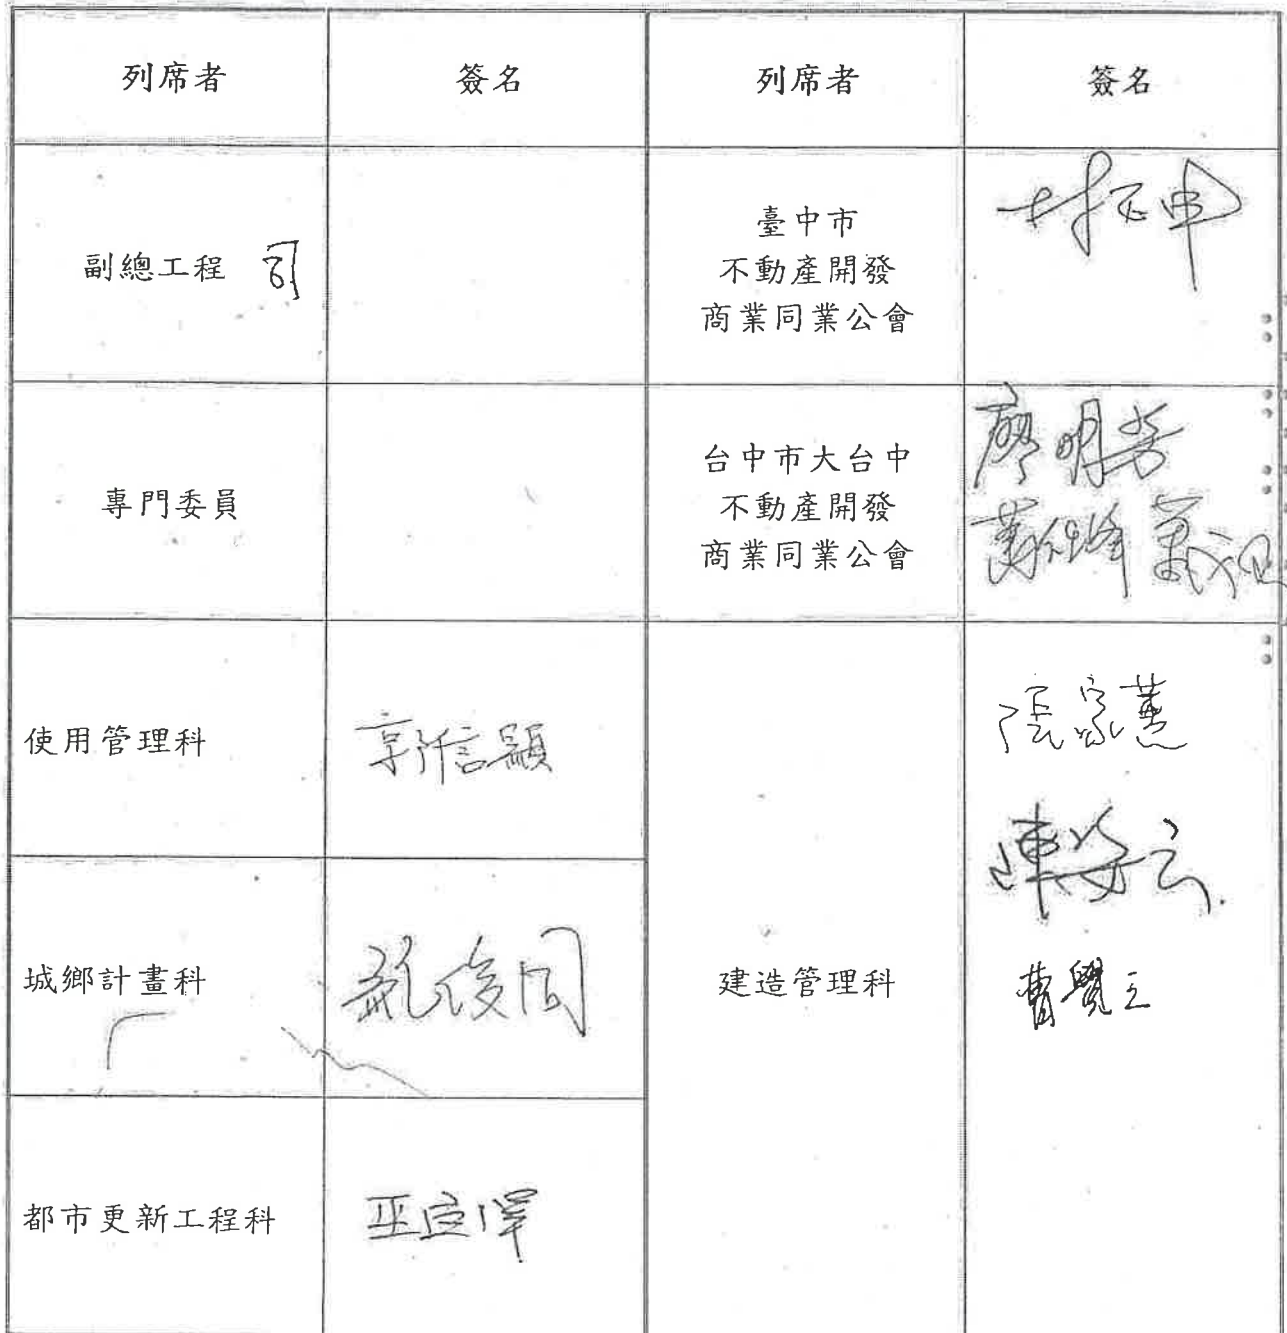 列席者 簽名 列席者 簽名
副總工程 司
臺中市
不動產開發
商業同業公會
林正申
專門委員
台中市大台中
不動產開發
商業同業公會
廖明芳
使用管理科
郭信顯
建造管理科
張家蕙
陳姿云
曹覺之
城鄉計畫科
都市更新工程科